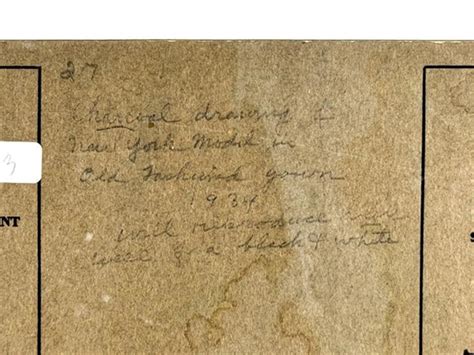 27
Charcoal drawing of
New York Model in
Old Fashioned gown
1934
will reproduce
well a black & white
3
NT
S